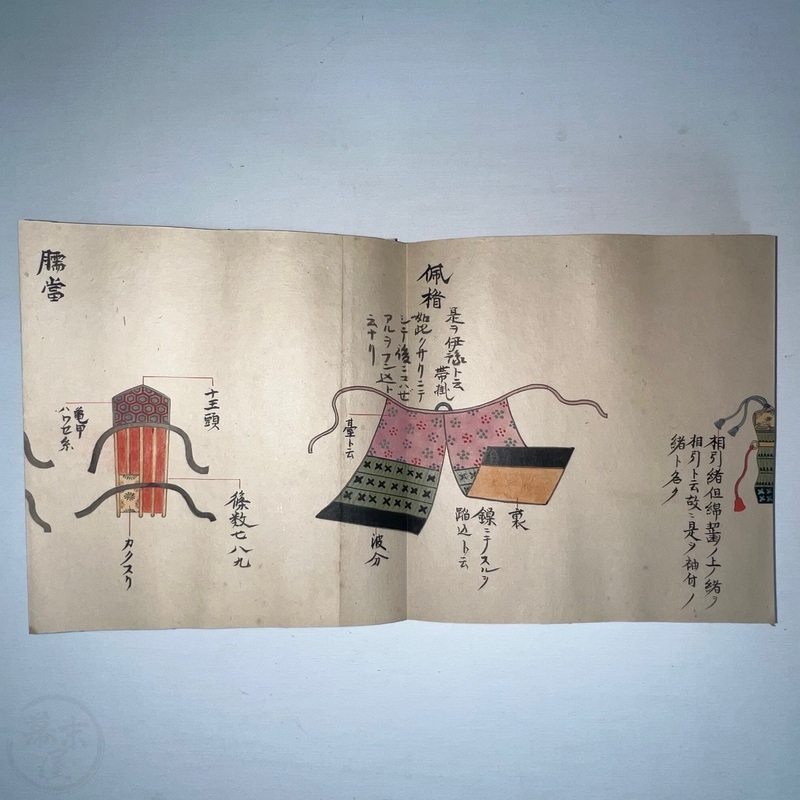 相引緒但綿齧ノ上ノ緒ヲ
相引ト云故ニ是ヲ袖付ノ
緒ト名ク
佩楯
是ヲ伊豫ト云
帯掛
如此クサリニテ
シテ後ニコハゼ
アルヲフン込ト
云ナリ
臺ト云
裏
鎖ニテスルヲ
踏込ト云
波分
臑當
十王頭
亀甲
ハワセ糸
條数七八九
カクスリ